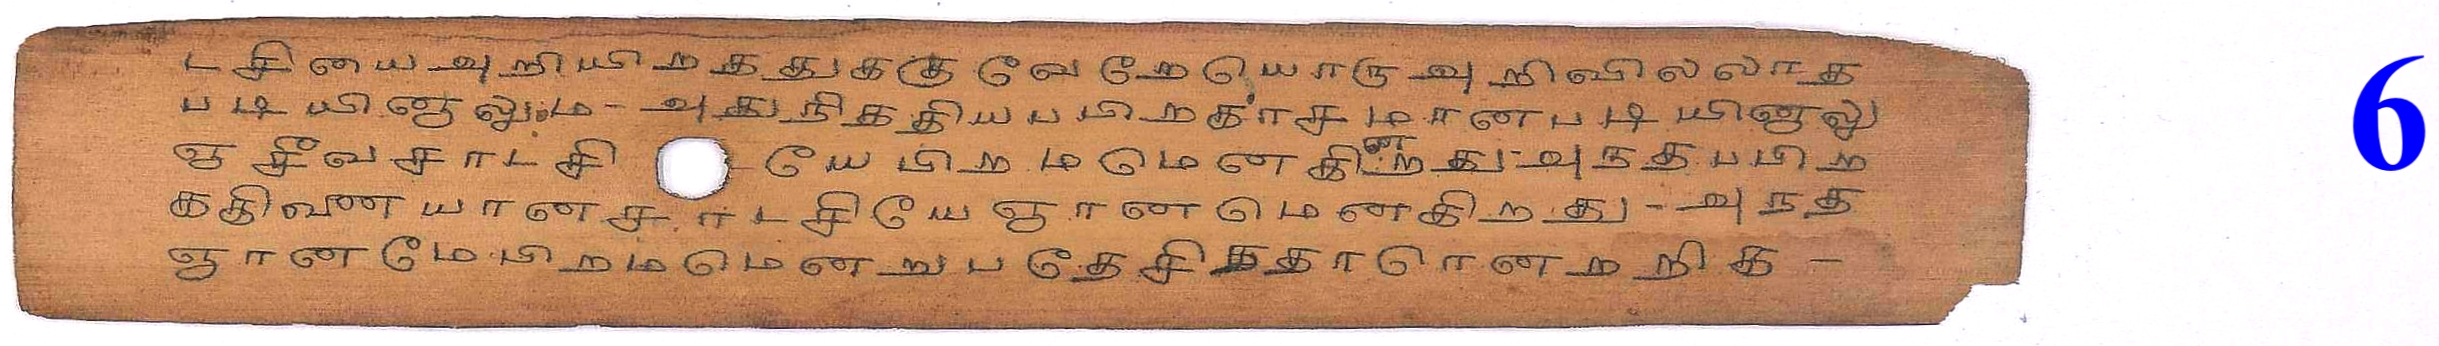 டசியைஅறியிறததுககு வேறேயொரு அறிவிலலாத
படியினாலும - அதுநிததியபபிறகாசமானபடியினாலு
ஞ சீவசாடசி யேபிறமமெனகினறது - அநதபபிற
கதிவணயானசாடசியேஞானமெனகிறது - அநத
ஞானமேபிறமமெனறுபதேசிததாரெனறறிக -
6